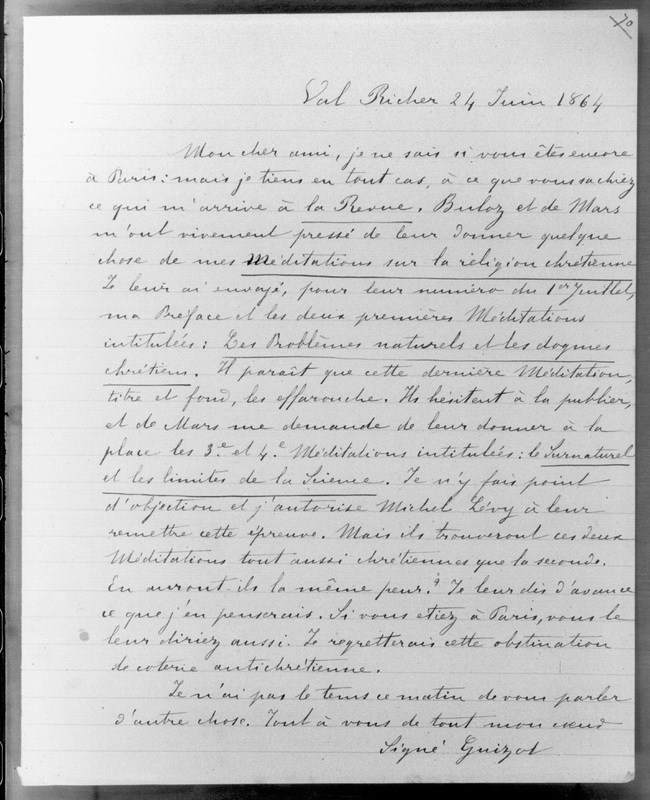 70
Val Richer 24 Juin 1864
Mon cher ami, je ne sais si vous êtes encore
à Paris : mais je tiens en tout cas, à ce que vous sachiez
ce qui m'arrive à la Revue. Buloz et de Mars
m'ont vivement pressé de leur donner quelque
chose de mes Méditations sur la réligion chrétienne
Je leur ai envoyé, pour leur numéro du 1er Juillet,
ma Préface et les deux premières Méditations
intitulées : Les Problèmes naturels et les dogmes
chrétiens. Il paraît que cette dernière Méditation,
titre et fond, les effarouche. Ils hésitent à la publier,
et de Mars me demande de leur donner à la
place les 3.e et 4.e Méditations intitulées : le Surnaturel
et les limites de la Science. Je n'y fais point
d'objection et j'autorise Michel Lévy à leur
remettre cette épreuve. Mais ils trouveront ces deux
Méditations tout aussi chrétiennes que la seconde.
En auront-ils la même peur ? Je leur dis d'avance
ce que j'en penserais. Si vous etiez à Paris, vous le
leur diriez aussi. Je regretterais cette obstination
de coterie antichrétienne.
Je n'ai pas le tems ce matin de vous parler
d'autre chose. Tout à vous de tout mon cœur
Signé Guizot